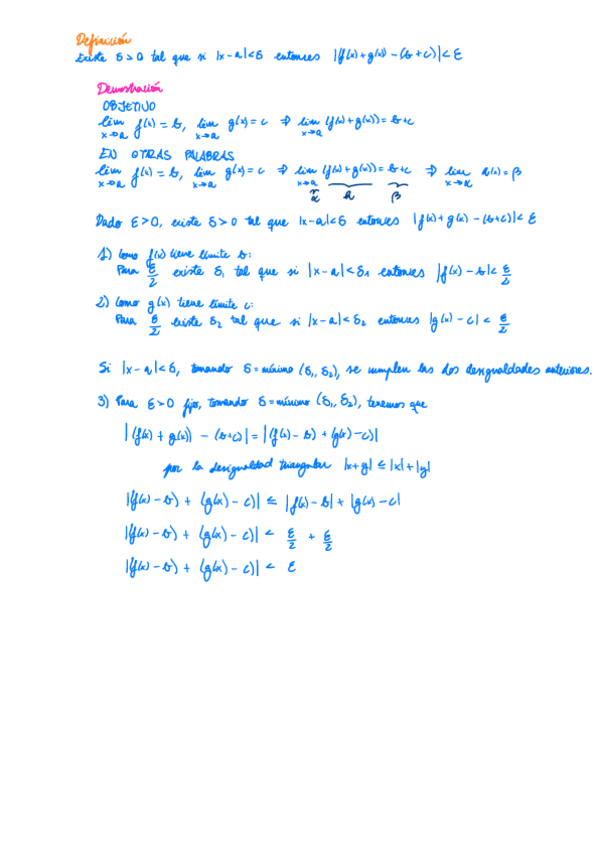 Definición
Existe δ > 0 tal que si |x - a| < δ entonces |(f(x) + g(x)) - (b + c)| < ε
Demostración
OBJETIVO
lim f(x) = b, lim g(x) = c ⇒ lim (f(x) + g(x)) = b + c
x→a x→a x→a
EN OTRAS PALABRAS
lim f(x) = b, lim g(x) = c ⇒ lim (f(x) + g(x)) = b + c ⇒ lim h(x) = β
x→a x→a x→a x→α
α h β
Dado ε > 0, existe δ > 0 tal que |x - a| < δ entonces |f(x) + g(x) - (b + c)| < ε
1) Como f(x) tiene límite b:
Para ε/2 existe δ₁ tal que si |x - a| < δ₁ entonces |f(x) - b| < ε/2
2) Como g(x) tiene límite c:
Para ε/2 existe δ₂ tal que si |x - a| < δ₂ entonces |g(x) - c| < ε/2
Si |x - a| < δ, tomando δ = mínimo (δ₁, δ₂), se cumplen las dos desigualdades anteriores.
3) Para ε > 0 fijo, tomando δ = mínimo (δ₁, δ₂), tenemos que
|(f(x) + g(x)) - (b + c)| = |(f(x) - b) + (g(x) - c)|
por la desigualdad triangular |x + y| ≤ |x| + |y|
|(f(x) - b) + (g(x) - c)| ≤ |f(x) - b| + |g(x) - c|
|(f(x) - b) + (g(x) - c)| < ε/2 + ε/2
|(f(x) - b) + (g(x) - c)| < ε